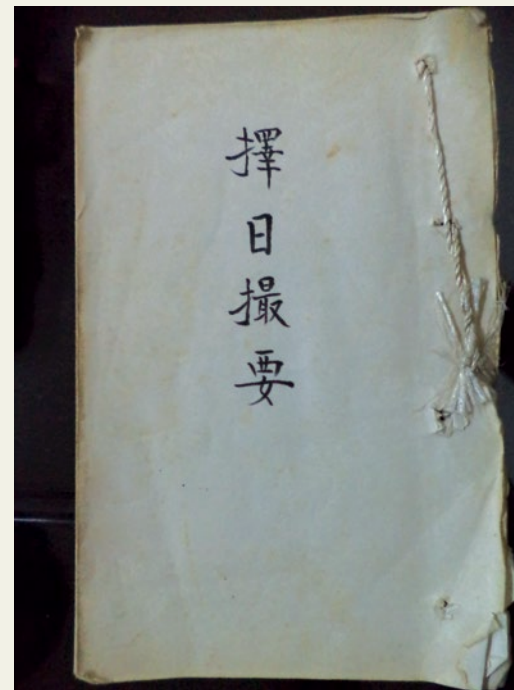 擇日撮要